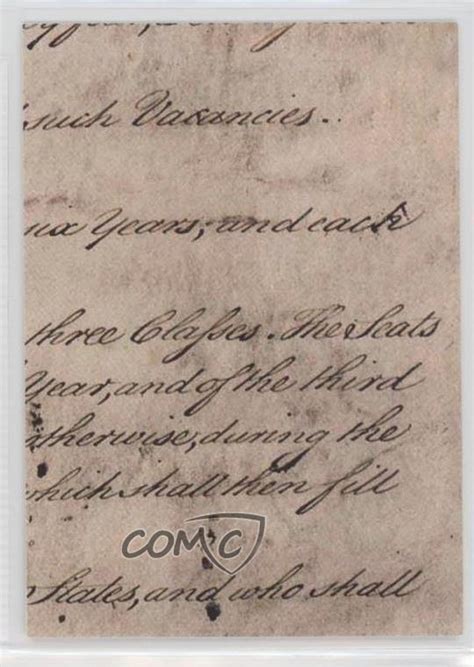 such Vacancies.
six Years; and each
three Classes. The Seats
Year, and of the third
otherwise, during the
which shall then fill
COMC
States, and who shall